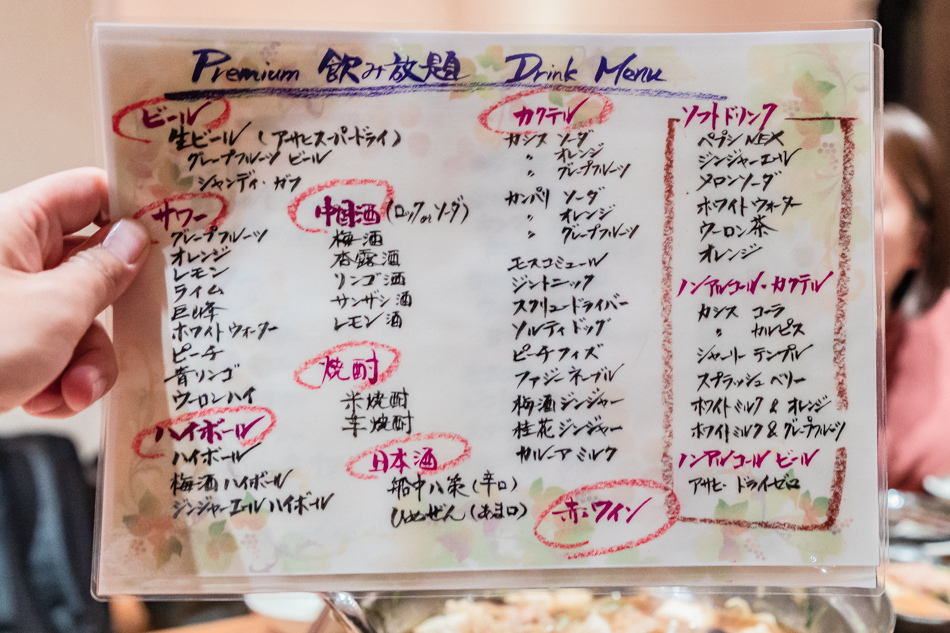 Premium 飲み放題 Drink Menu
ビール
生ビール (アサヒスーパードライ)
グレープフルーツ ビール
シャンディ・ガフ
サワー
グレープフルーツ
オレンジ
レモン
ライム
巨峰
ホワイトウォーター
ピーチ
青リンゴ
ウーロンハイ
ハイボール
ハイボール
梅酒ハイボール
ジンジャーエールハイボール
中国酒(ロックorソーダ)
梅酒
杏露酒
リンゴ酒
サンザシ酒
レモン酒
焼酎
米焼酎
芋焼酎
日本酒
船中八策(辛口)
ひめぜん(あま口)
カクテル
カシス ソーダ
〃 オレンジ
〃 グレープフルーツ
カンパリ ソーダ
〃 オレンジ
〃 グレープフルーツ
モスコミュール
ジントニック
スクリュードライバー
ソルティドッグ
ピーチフィズ
ファジーネーブル
梅酒ジンジャー
桂花ジンジャー
カルーア ミルク
赤ワイン
ソフトドリンク
ペプシNEX
ジンジャーエール
メロンソーダ
ホワイトウォーター
ウーロン茶
オレンジ
ノンアルコール・カクテル
カシス コーラ
〃 カルピス
シャーリーテンプル
スプラッシュベリー
ホワイトミルク & オレンジ
ホワイトミルク & グレープフルーツ
ノンアルコール ビール
アサヒ ドライゼロ